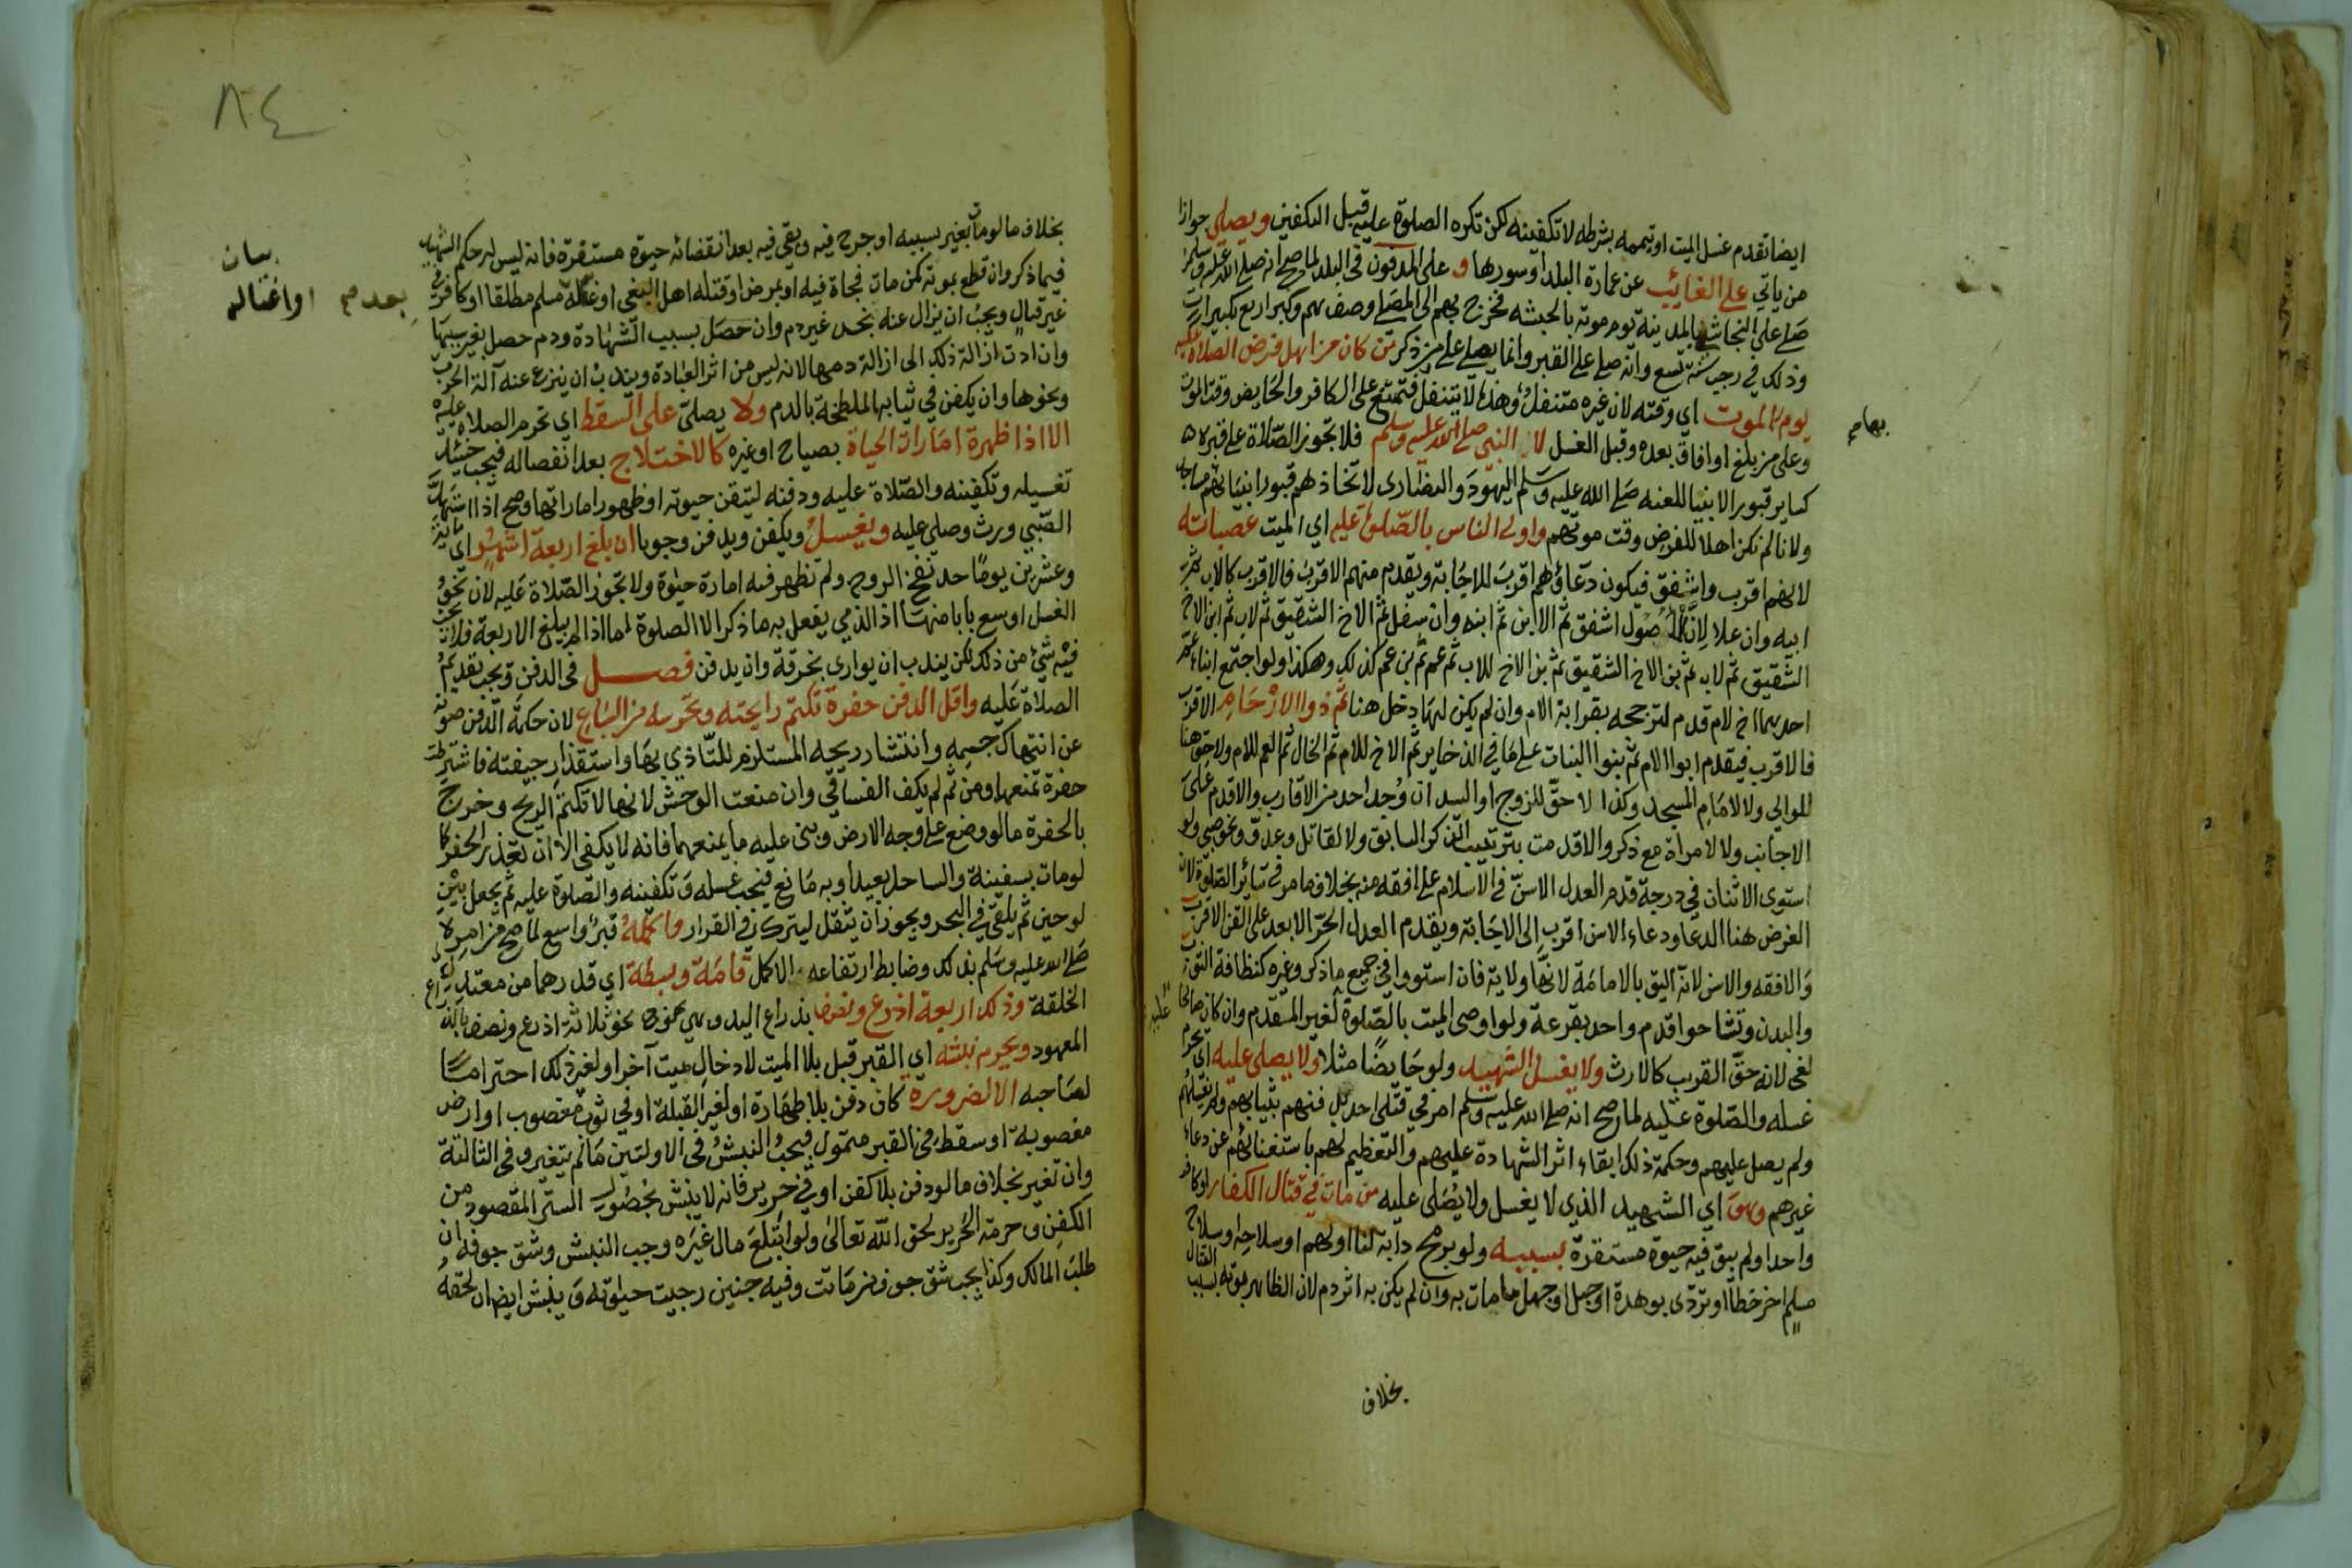 ايضا تقدم غسل الميت او تيممه بشرطه لا تكفينه لكن تكره الصلوة عليه قبل التكفين ويصلي جوازا
من ياتي على الغائب عن عمارة البلد او سورها و على المدفون في البلد لما صح انه صلى الله عليه وسلم
صلى على النجاشي بالمدينة يوم موته بالحبشه فخرج بهم الى المصلى وصف بهم وكبر اربع تكبيرات
وذلك في رجب سنة تسع وانه صلى على القبر وانما يصلي على من ذكر من كان من اهل فرض الصلاة عليه
يوم الموت اي وقته لان غيره متنفل وهذه لا يتنفل فتمتنع على الكافر والحايض وقت الموت
بها
وعلى من بلغ او افاق بعده وقبل الغسل لا النبي صلى الله عليه وسلم فلا تجوز الصلاة على قبره
كساير قبور الانبيا للعنه صلى الله عليه وسلم اليهود والنصارى لاتخاذهم قبور انبيائهم مساجد
ولانا لم نكن اهلا للفرض وقت موتهم واولى الناس بالصلوة عليه اي الميت عصباته
لانهم اقرب واشفق فيكون دعاؤهم اقرب للاجابة ويقدم منهم الاقرب فالاقرب كالاب ثم
ابيه وان علا لان الاصول اشفق ثم الابن ثم ابنه وان سفل ثم الاخ الشقيق ثم لاب ثم ابن الاخ
الشقيق ثم لاب ثم بن الاخ الشقيق ثم بن الاخ للاب ثم عم ثم بن عم كذلك وهكذا ولو اجتمع ابناء عم
احدهما اخ لام قدم لترجحه بقرابة الام وان لم يكن لها دخل هنا ثم ذوا الارحام الاقرب
فالاقرب فيقدم ابو الام ثم بنوا البنات على ما في الذخاير ثم الاخ للام ثم الخال ثم العم للام ولا حق هنا
للوالي ولا لامام المسجد وكذا لا حق للزوج او السيد ان وجد احد من الاقارب والاقدم على
الاجانب ولا لامراة مع ذكر والا قدمت بترتيب الذكر السابق ولا لقاتل وعدو ونحو صبي ولو
استوى الاثنان في درجة قدم العدل الاسن في الاسلام على افقه منه بخلاف ما مر في سائر الصلوة لان
الغرض هنا الدعا ودعاء الاسن اقرب الى الاجابة ويقدم العدل الحر الابعد على القن الاقرب
والافقه والاسن لانه اليق بالامامة لانها ولاية فان استووا في جميع ما ذكر وغيره كنظافة الثوب
والبدن وتشاحوا قدم واحد بقرعة ولو اوصى الميت بالصلوة لغير المتقدم وان كان صالحا
لغى لانه حق القرب كالارث ولا يغسل الشهيد ولو حايضا مثلا ولا يصلى عليه اي يحرم
غسله والصلوة عليه لما صح انه صلى الله عليه وسلم امر في قتلى احد بدفنهم بثيابهم ولم يغسلهم
ولم يصل عليهم وحكمة ذلك ابقاء اثر الشهادة عليهم والتعظيم لهم باستغنائهم عن دعاء
غيرهم وهو اي الشهيد الذي لا يغسل ولا يصلى عليه من مات في قتال الكفار او كافر
واحد او لم يبق فيه حيوة مستقرة بسببه ولو برمح دابة لنا او لهم او سلاحه او سلاح
مسلم اخر خطأ او تردى بوهدة او جبل او جهل ما مات به وان لم يكن به اثر دم لان الظاهر موته بسبب القتال
بخلاف
٨٤
بخلاف ما لو مات بغير سببه او جرح فيه وبقي فيه بعد انقضائه حيوة مستقرة فانه ليس له حكم الشهيد
فيما ذكر وان قطع بموته كمن مات فجاة فيه او بمرض او قتله اهل البغي او غاله مسلم مطلقا او كافر في
او اغتاله
غير قتال ويجب ان يزال عنه نجس غير دم وان حصل بسبب الشهادة ودم حصل بغير سببها
وان ادت ازالة ذلك الى ازالة دمها لانه ليس من اثر العبادة ويندب ان ينزع عنه آلة الحرب
ونحوها وان يكفن في ثيابه الملطخة بالدم ولا يصلى على السقط اي تحرم الصلاة عليه
الا اذا ظهرة امارات الحياة بصياح او غيره كالاختلاج بعد انفصاله فيجب حينئذ
تغسيله وتكفينه والصلاة عليه ودفنه لتيقن حيوته او ظهور اماراتها وصح اذا استهل
الصبي ورث وصلي عليه ويغسل ويكفن ويدفن وجوبا ان بلغ اربعة اشهر اي مائة
وعشرين يوما حد نفخ الروح ولم تظهر فيه امارة حيوة ولا تجوز الصلاة عليه لان نحو
الغسل اوسع بابا منها اذ الذمي يفعل به ما ذكر الا الصلوة لما اذا لم يبلغ الاربعة فلا يجب
فيه شيء من ذلك لكن يندب ان يوارى بخرقة وان يدفن فصل في الدفن ويجب تقديم
الصلاة عليه واقل الدفن حفرة تكتم رايحته وتحرسه من السباع لان حكمة الدفن صونه
عن انتهاك جسمه وانتشار ريحه المستلزم للتاذي بها واستقذار جيفته فاشترطت
حفرة تمنعهما ومن ثم لم يكف الفساقي وان منعت الوحش لانها لا تكتم الريح وخرج
بالحفرة ما لو وضع على وجه الارض وبنى عليه ما يمنعهما فانه لا يكفي الا ان تعذر الحفر كما
لو مات بسفينة والساحل بعيد او به مانع فيجب غسله وتكفينه والصلوة عليه ثم يجعل بين
لوحين ثم يلقى في البحر ويجوز ان يثقل ليترك في القرار واكمله قبر واسع لما صح من امره
صلى الله عليه وسلم بذلك وضابط ارتفاعه الاكمل قامة وبسطة اي قدرهما من معتدل
الخلقة وذلك اربعة اذرع ونصف بذراع اليد وهي نحو ثلاثة اذرع ونصف بالذراع
المعهود ويحرم نبشه اي القبر قبل بلا الميت لادخال ميت آخر او لغير ذلك احتراما
لصاحبه الا لضرورة كان دفن بلا طهارة او لغير القبلة او في ثوب مغصوب او ارض
مغصوبة او سقط في القبر متمول فيجب النبش في الاولتين ما لم يتغير وفي الثالثة
وان تغير بخلاف ما لو دفن بلا كفن او في حرير فانه لا ينبش لحصول الستر المقصود من
الكفن وحرمة الحرير لحق الله تعالى ولو ابتلع مال غيره وجب النبش وشق جوفه ان
طلب المالك وكذا يجب شق جوف من ماتت وفيه جنين رجيت حيوته وينبش ايضا ان لحقه